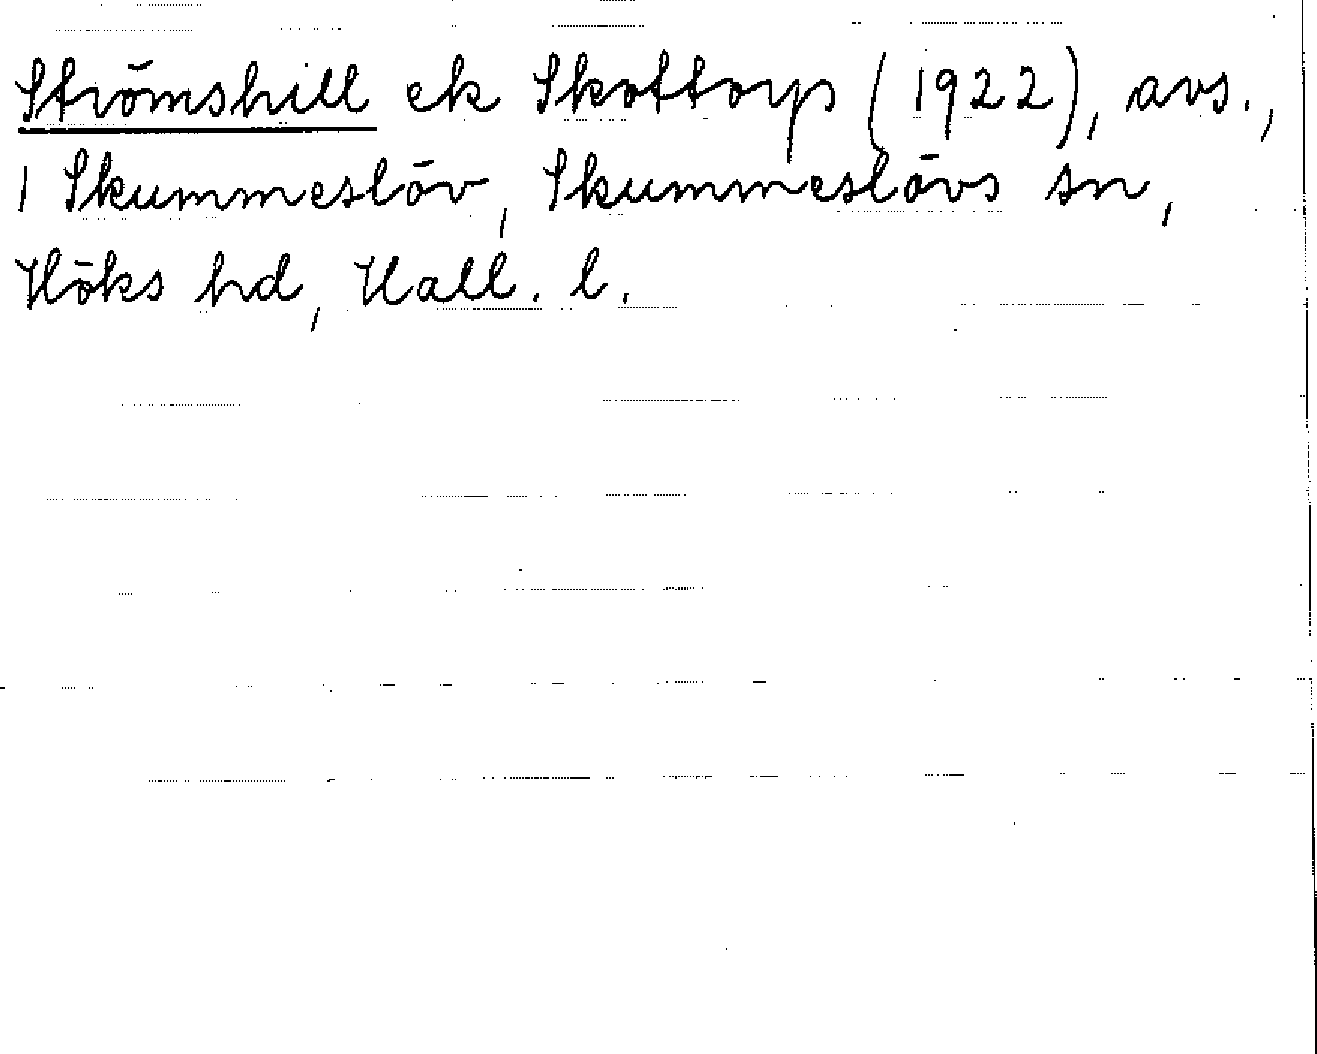 Strömshill ek Skottorp (1922), avs.,
1 Skummeslöv, Skummeslövs sn,
Höks hd, Hall. l.